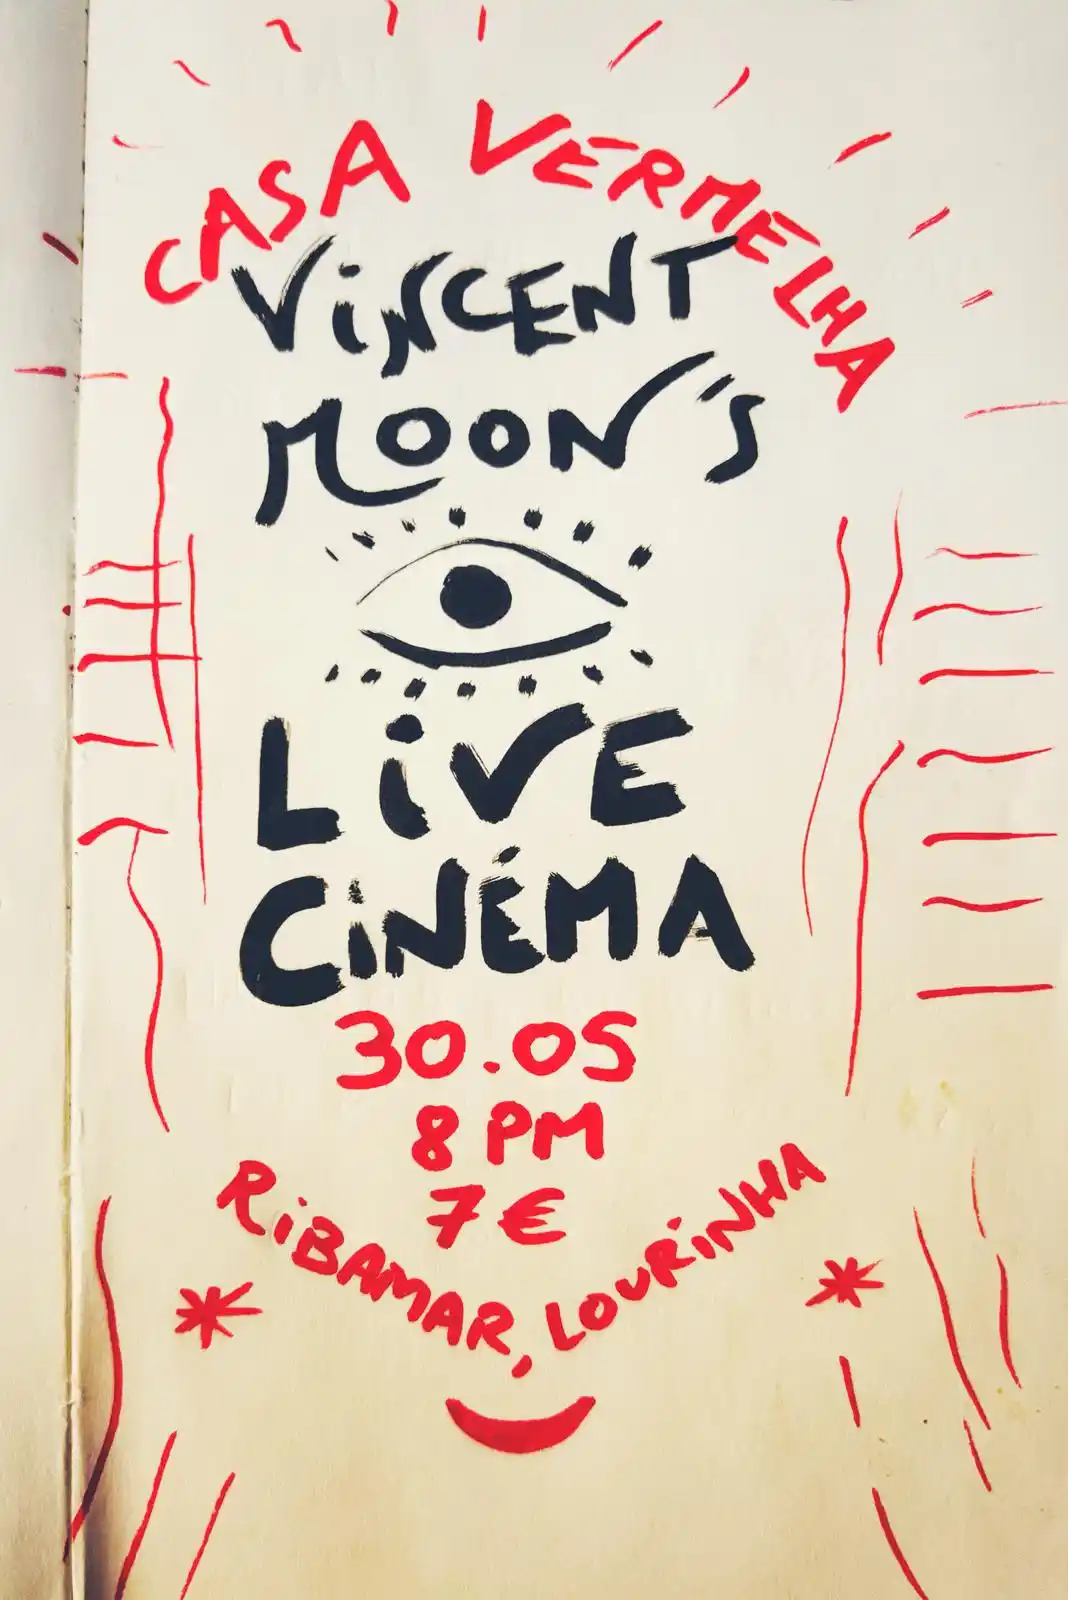 CASA VERMELHA
ViNCENT
MOON'S
LiVE
CiNÉMA
30.05
8 PM
7 €
RiBAMAR, LOURiNHA